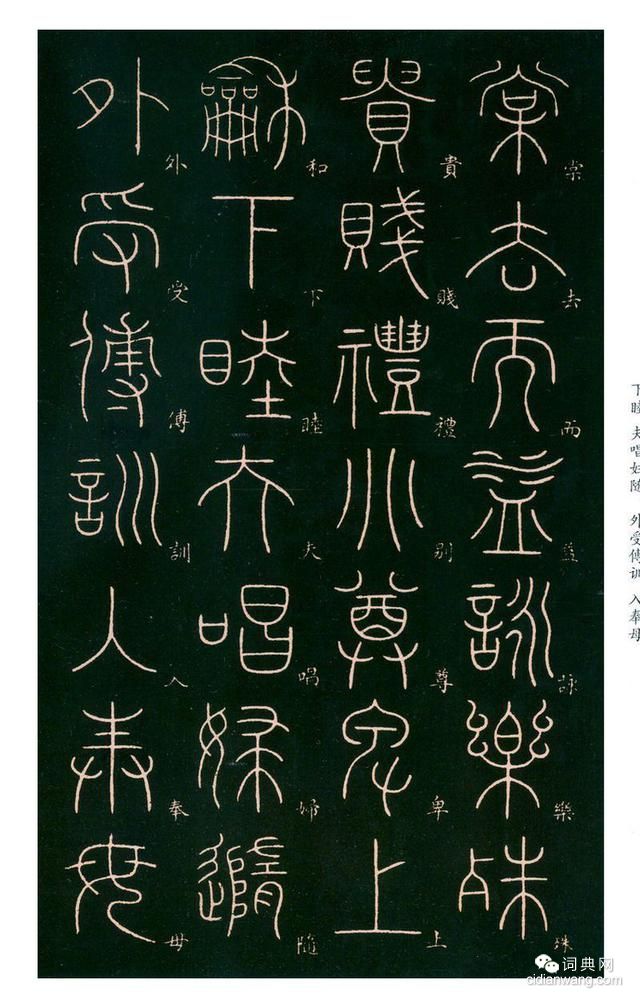 棠去而益詠樂殊
貴賤禮別尊卑上
和下睦夫唱婦隨
外受傅訓入奉母
下睦 夫唱婦隨 外受傅训 入奉母
词典网
cidianwang.com